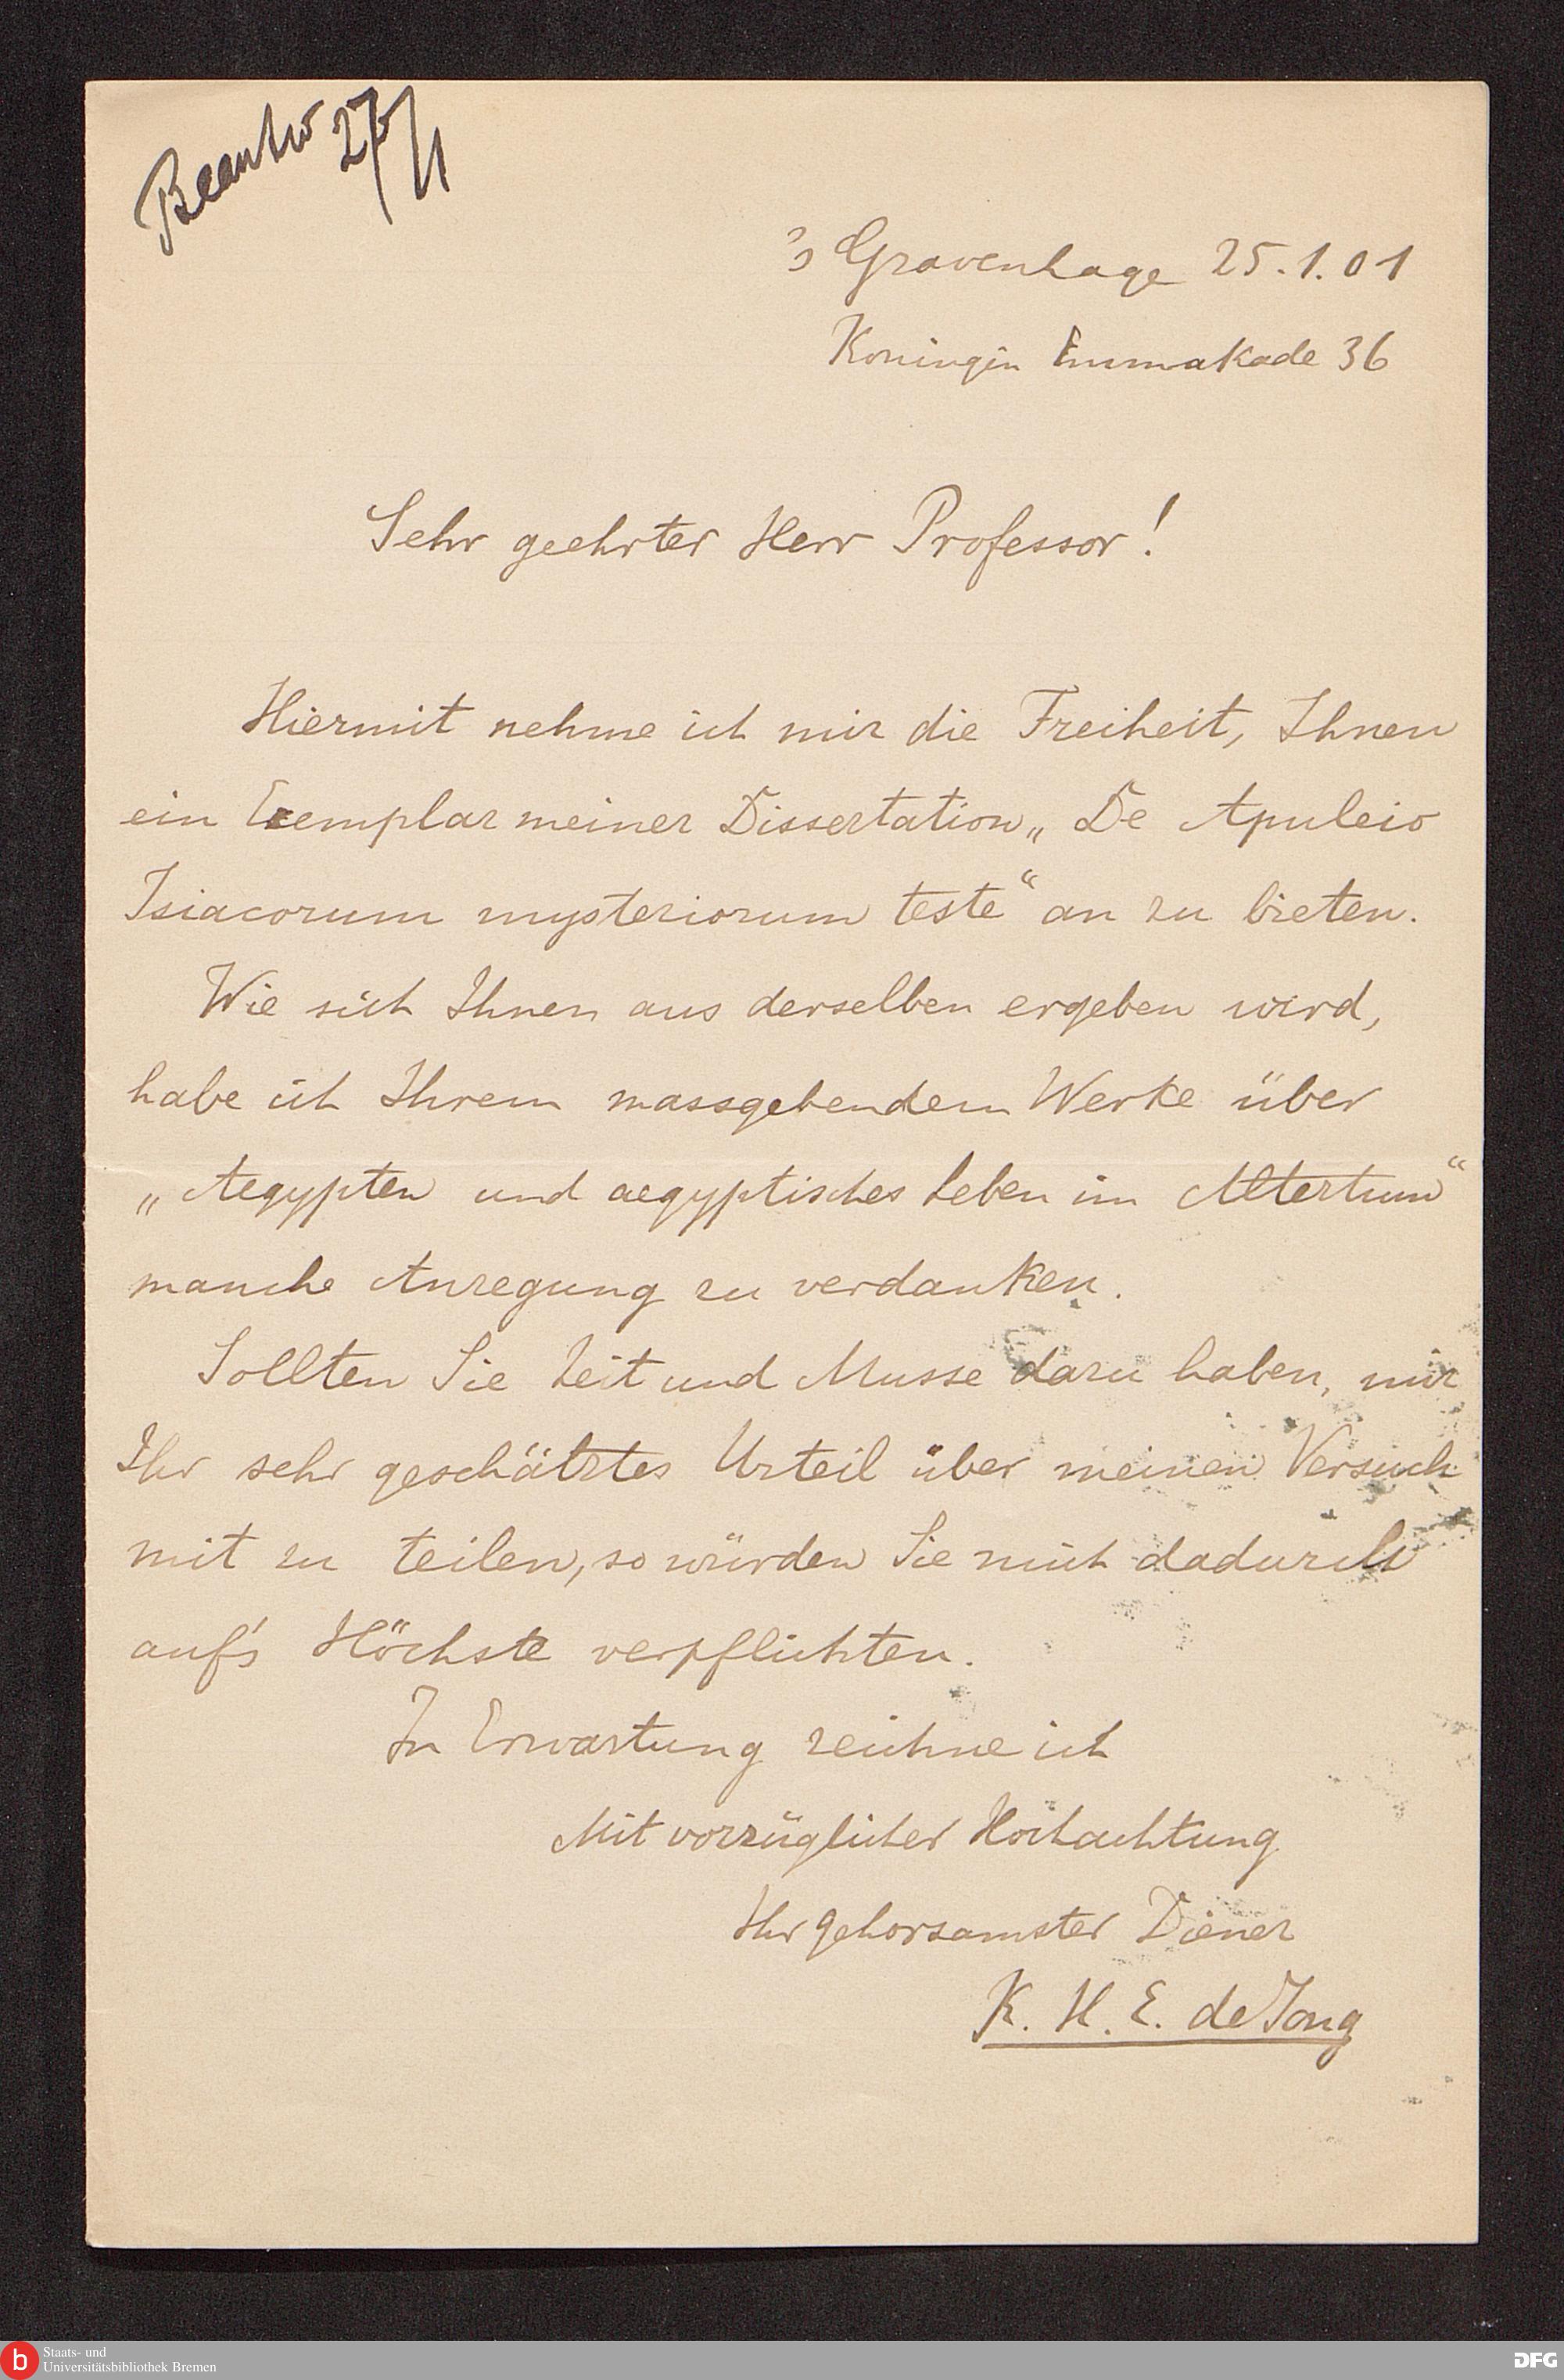 Beantw 27/1
's Gravenhage 25.1.01
Koningin Emmakade 36
Sehr geehrter Herr Professor!
Hiermit nehme ich mir die Freiheit, Ihnen
ein Exemplar meiner Dissertation „De Apuleio
Isiacorum mysteriorum teste“ an zu bieten.
Wie sich Ihnen aus derselben ergeben wird,
habe ich Ihrem massgebendem Werke über
„Aegypten und aegyptisches Leben im Altertum“
manche Anregung zu verdanken.
Sollten Sie Zeit und Musse dazu haben, mir
Ihr sehr geschätztes Urteil über meinen Versuch
mit zu teilen, so würden Sie mich dadurch
auf's Höchste verpflichten.
In Erwartung zeichne ich
Mit vorzüglicher Hochachtung
Ihr gehorsamster Diener
K. H. E. de Jong
b Staats- und
Universitätsbibliothek Bremen
DFG